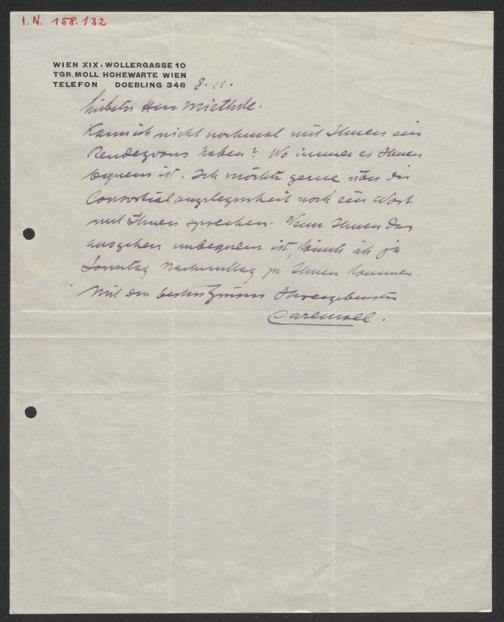 I.N. 158.132
WIEN XIX, WOLLERGASSE 10
TGR. MOLL HOHEWARTE WIEN
TELEFON DOEBLING 348
8.11.
Liebster Herr Miethke.
Kann ich nicht nochmal mit Ihnen ein
Rendezvous haben? Wo immer es Ihnen
bequem ist. Ich möchte gerne über die
Consortialangelegenheit noch ein Wort
mit Ihnen sprechen. Wenn Ihnen das
ausgehen unbequem ist, könnte ich ja
Sonntag Nachmittag zu Ihnen kommen.
Mit den besten Grüssen Ihr ergebenster
Carl Moll.